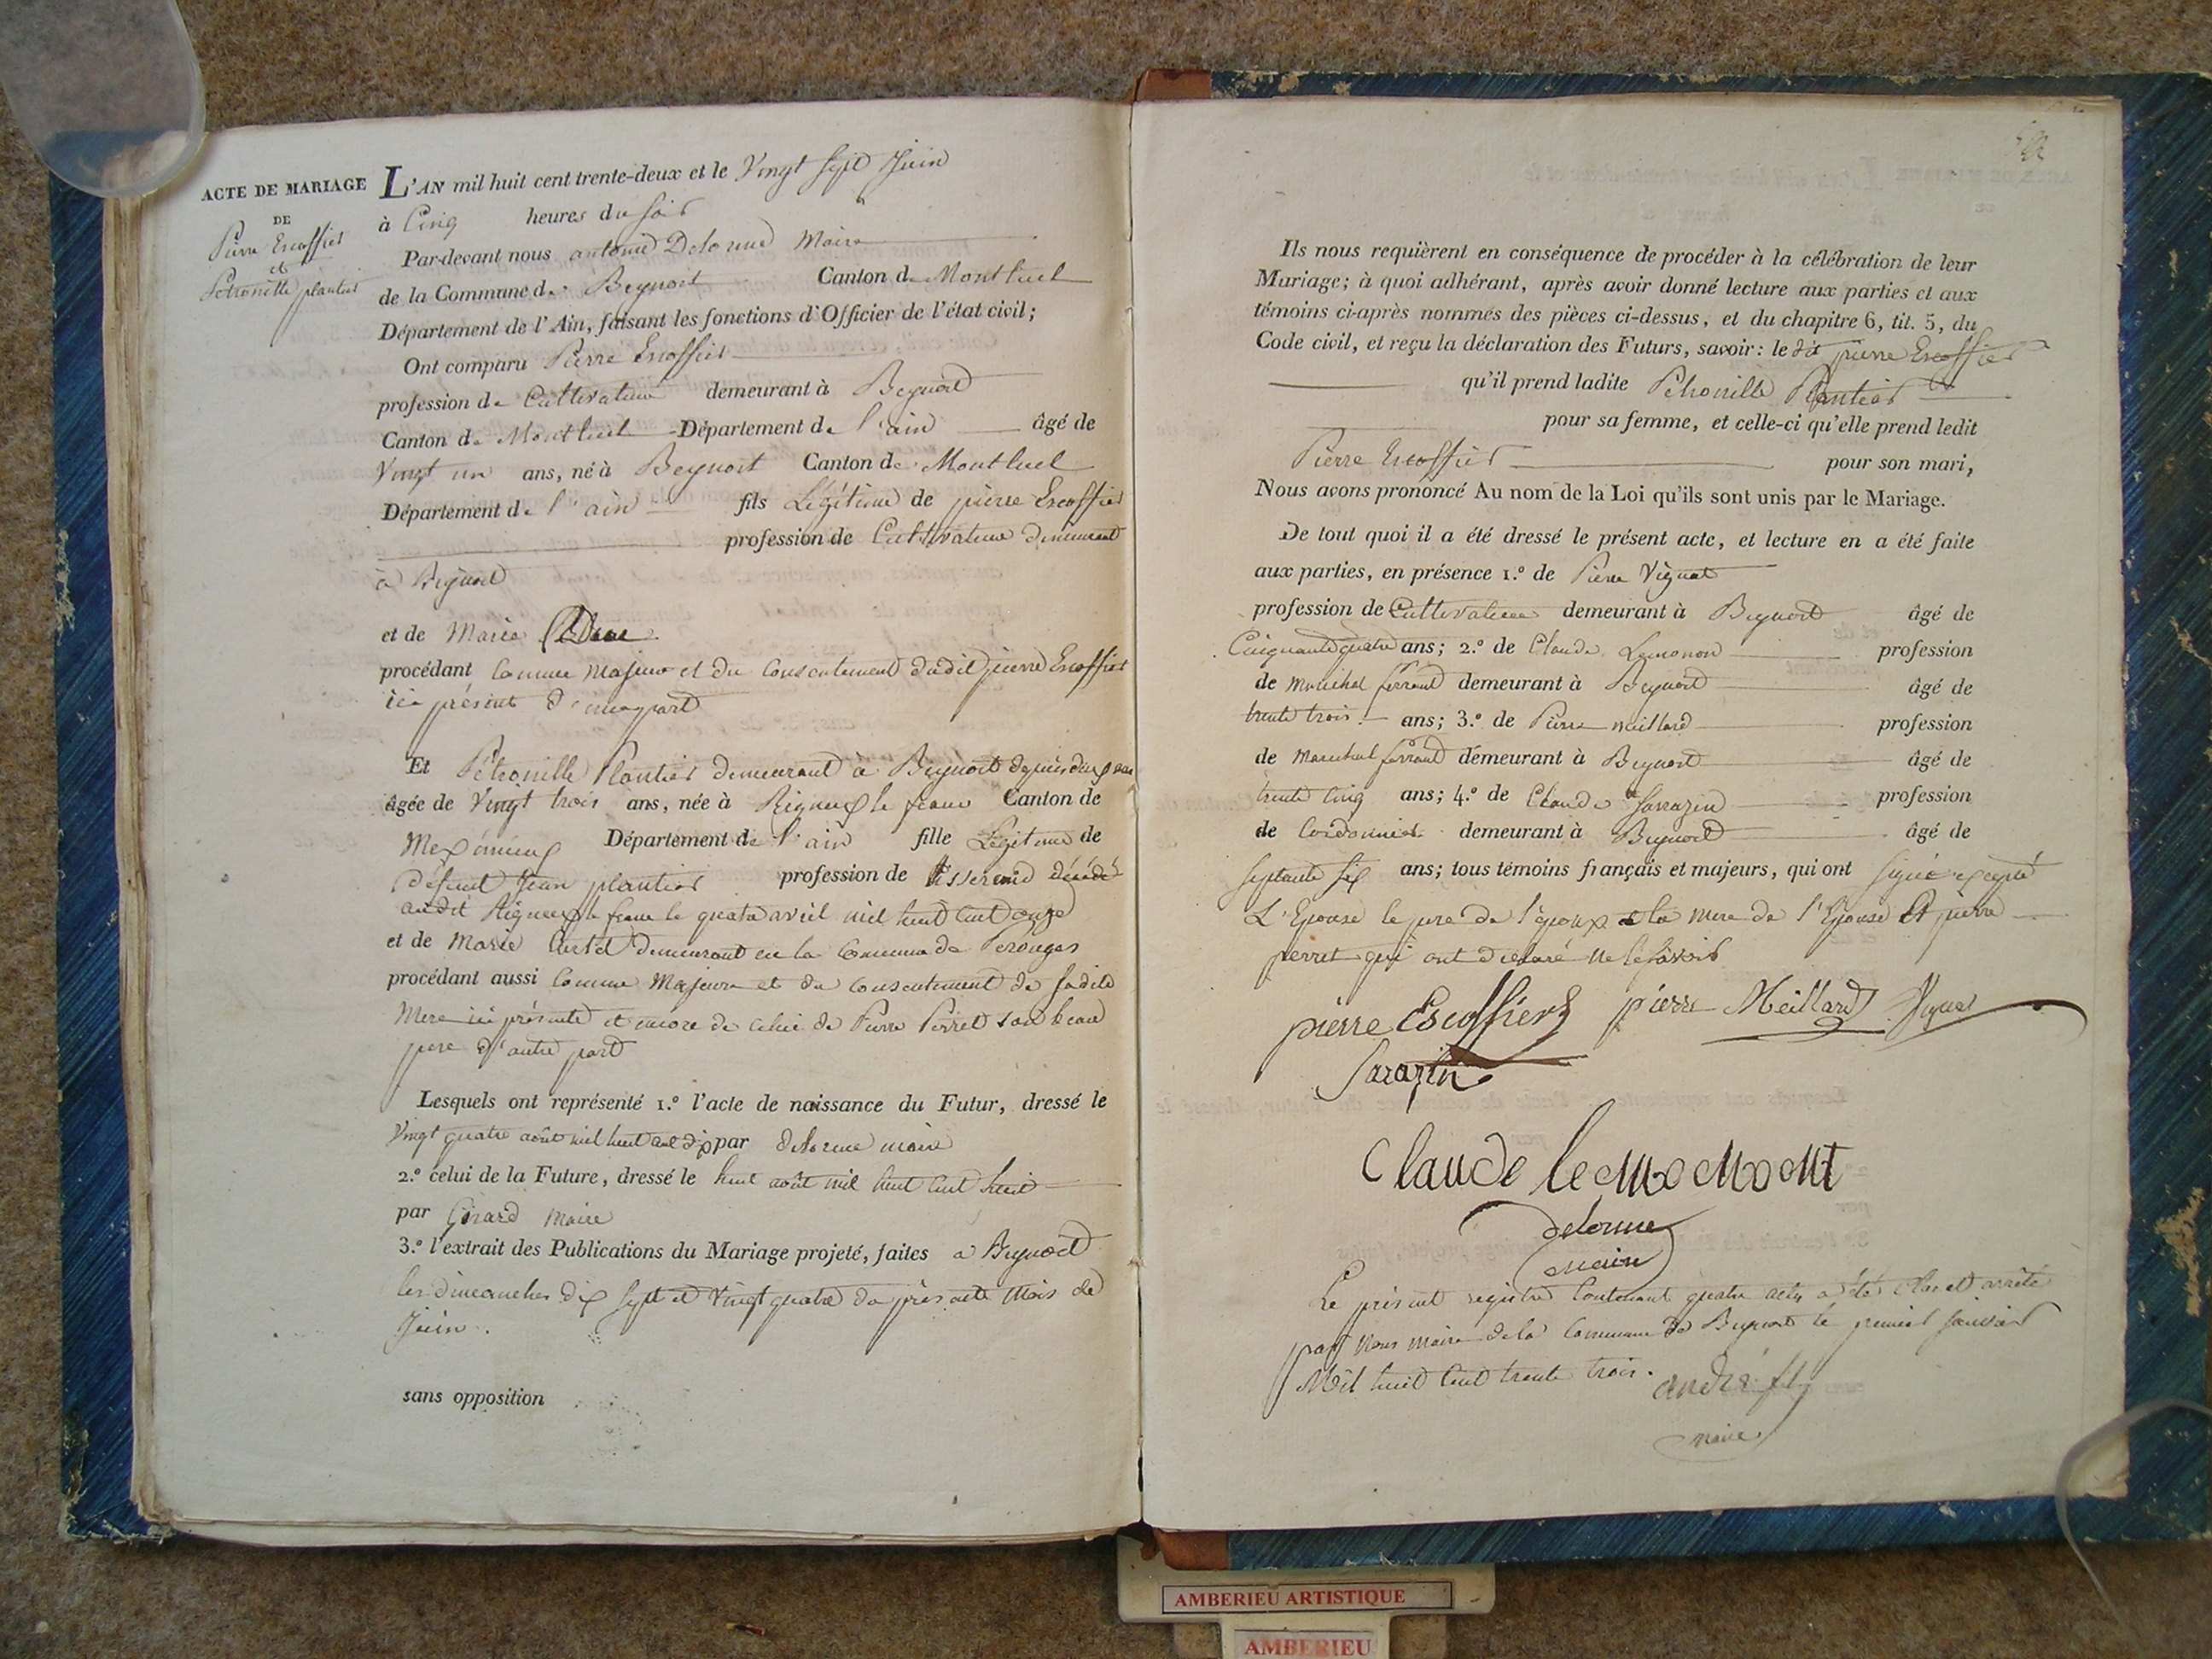 ACTE DE MARIAGE
DE
Pierre Escoffier
et
Pétronille plantier
L'AN mil huit cent trente-deux et le Vingt Sept Juin
à Cinq heures du Soir
Par-devant nous antoine Delorme Maire
de la Commune de Beynost Canton de Montluel
Département de l'Ain, faisant les fonctions d'Officier de l'état civil;
Ont comparu Pierre Escoffier
profession de Cultivateur demeurant à Beynost
Canton de Montluel Département de l'ain âgé de
Vingt un ans, né à Beynost Canton de Montluel
Département de l'ain fils Légitime de pierre Escoffier
profession de Cultivateur demeurant
à Beynost
et de Marie
procédant Comme Majeur et du Consentement dudit pierre Escoffier
ici présent d'une part
Et Pétronille Plantier demeurant à Beynost depuis deux ans
âgée de Vingt trois ans, née à Rigneux le franc Canton de
Meximieux Département de l'ain fille Légitime de
Défunt Jean plantier profession de tisserand décédé
audit Rigneux le franc le quatre avril mil huit cent onze
et de Marie demeurant en la Commune de Perouges
procédant aussi Comme Majeure et du Consentement de sadite
Mere ici présente et encore de celui de Pierre Perret son beau
pere d'autre part
Lesquels ont représenté 1.º l'acte de naissance du Futur, dressé le
Vingt quatre août mil huit cent dix par delorme maire
2.º celui de la Future, dressé le huit août mil huit cent huit
par Girard Maire
3.º l'extrait des Publications du Mariage projeté, faites à Beynost
les dimanches dix Sept et Vingt quatre du présent Mois de
Juin.
sans opposition
Ils nous requièrent en conséquence de procéder à la célébration de leur
Mariage; à quoi adhérant, après avoir donné lecture aux parties et aux
témoins ci-après nommés des pièces ci-dessus, et du chapitre 6, tit. 5, du
Code civil, et reçu la déclaration des Futurs, savoir: le dit pierre Escoffier
qu'il prend ladite Pétronille Plantier
pour sa femme, et celle-ci qu'elle prend ledit
Pierre Escoffier pour son mari,
Nous avons prononcé Au nom de la Loi qu'ils sont unis par le Mariage.
De tout quoi il a été dressé le présent acte, et lecture en a été faite
aux parties, en présence 1.º de Pierre Vignat
profession de Cultivateur demeurant à Beynost âgé de
Cinquante quatre ans; 2.º de Claude Lemonon profession
de Maréchal ferrant demeurant à Beynost âgé de
trente trois ans; 3.º de Pierre meillard profession
de Marechal ferrant demeurant à Beynost âgé de
trente Cinq ans; 4.º de Claude Sarrazin profession
de Cordonnier demeurant à Beynost âgé de
Septante Six ans; tous témoins français et majeurs, qui ont signé excepté
L'Epouse le pere de l'époux la mere de l'Epouse Et pierre
perret qui ont declaré ne le Savoir
pierre Escoffier pierre Meillard
Sarazin
Claude
delorme
maire
Le présent registre Contenant quatre actes a été Clos et arrêté
par Nous maire de la Commune de Beynost le premier Janvier
Mil huit Cent trente trois.
maire
AMBERIEU ARTISTIQUE
AMBERIEU